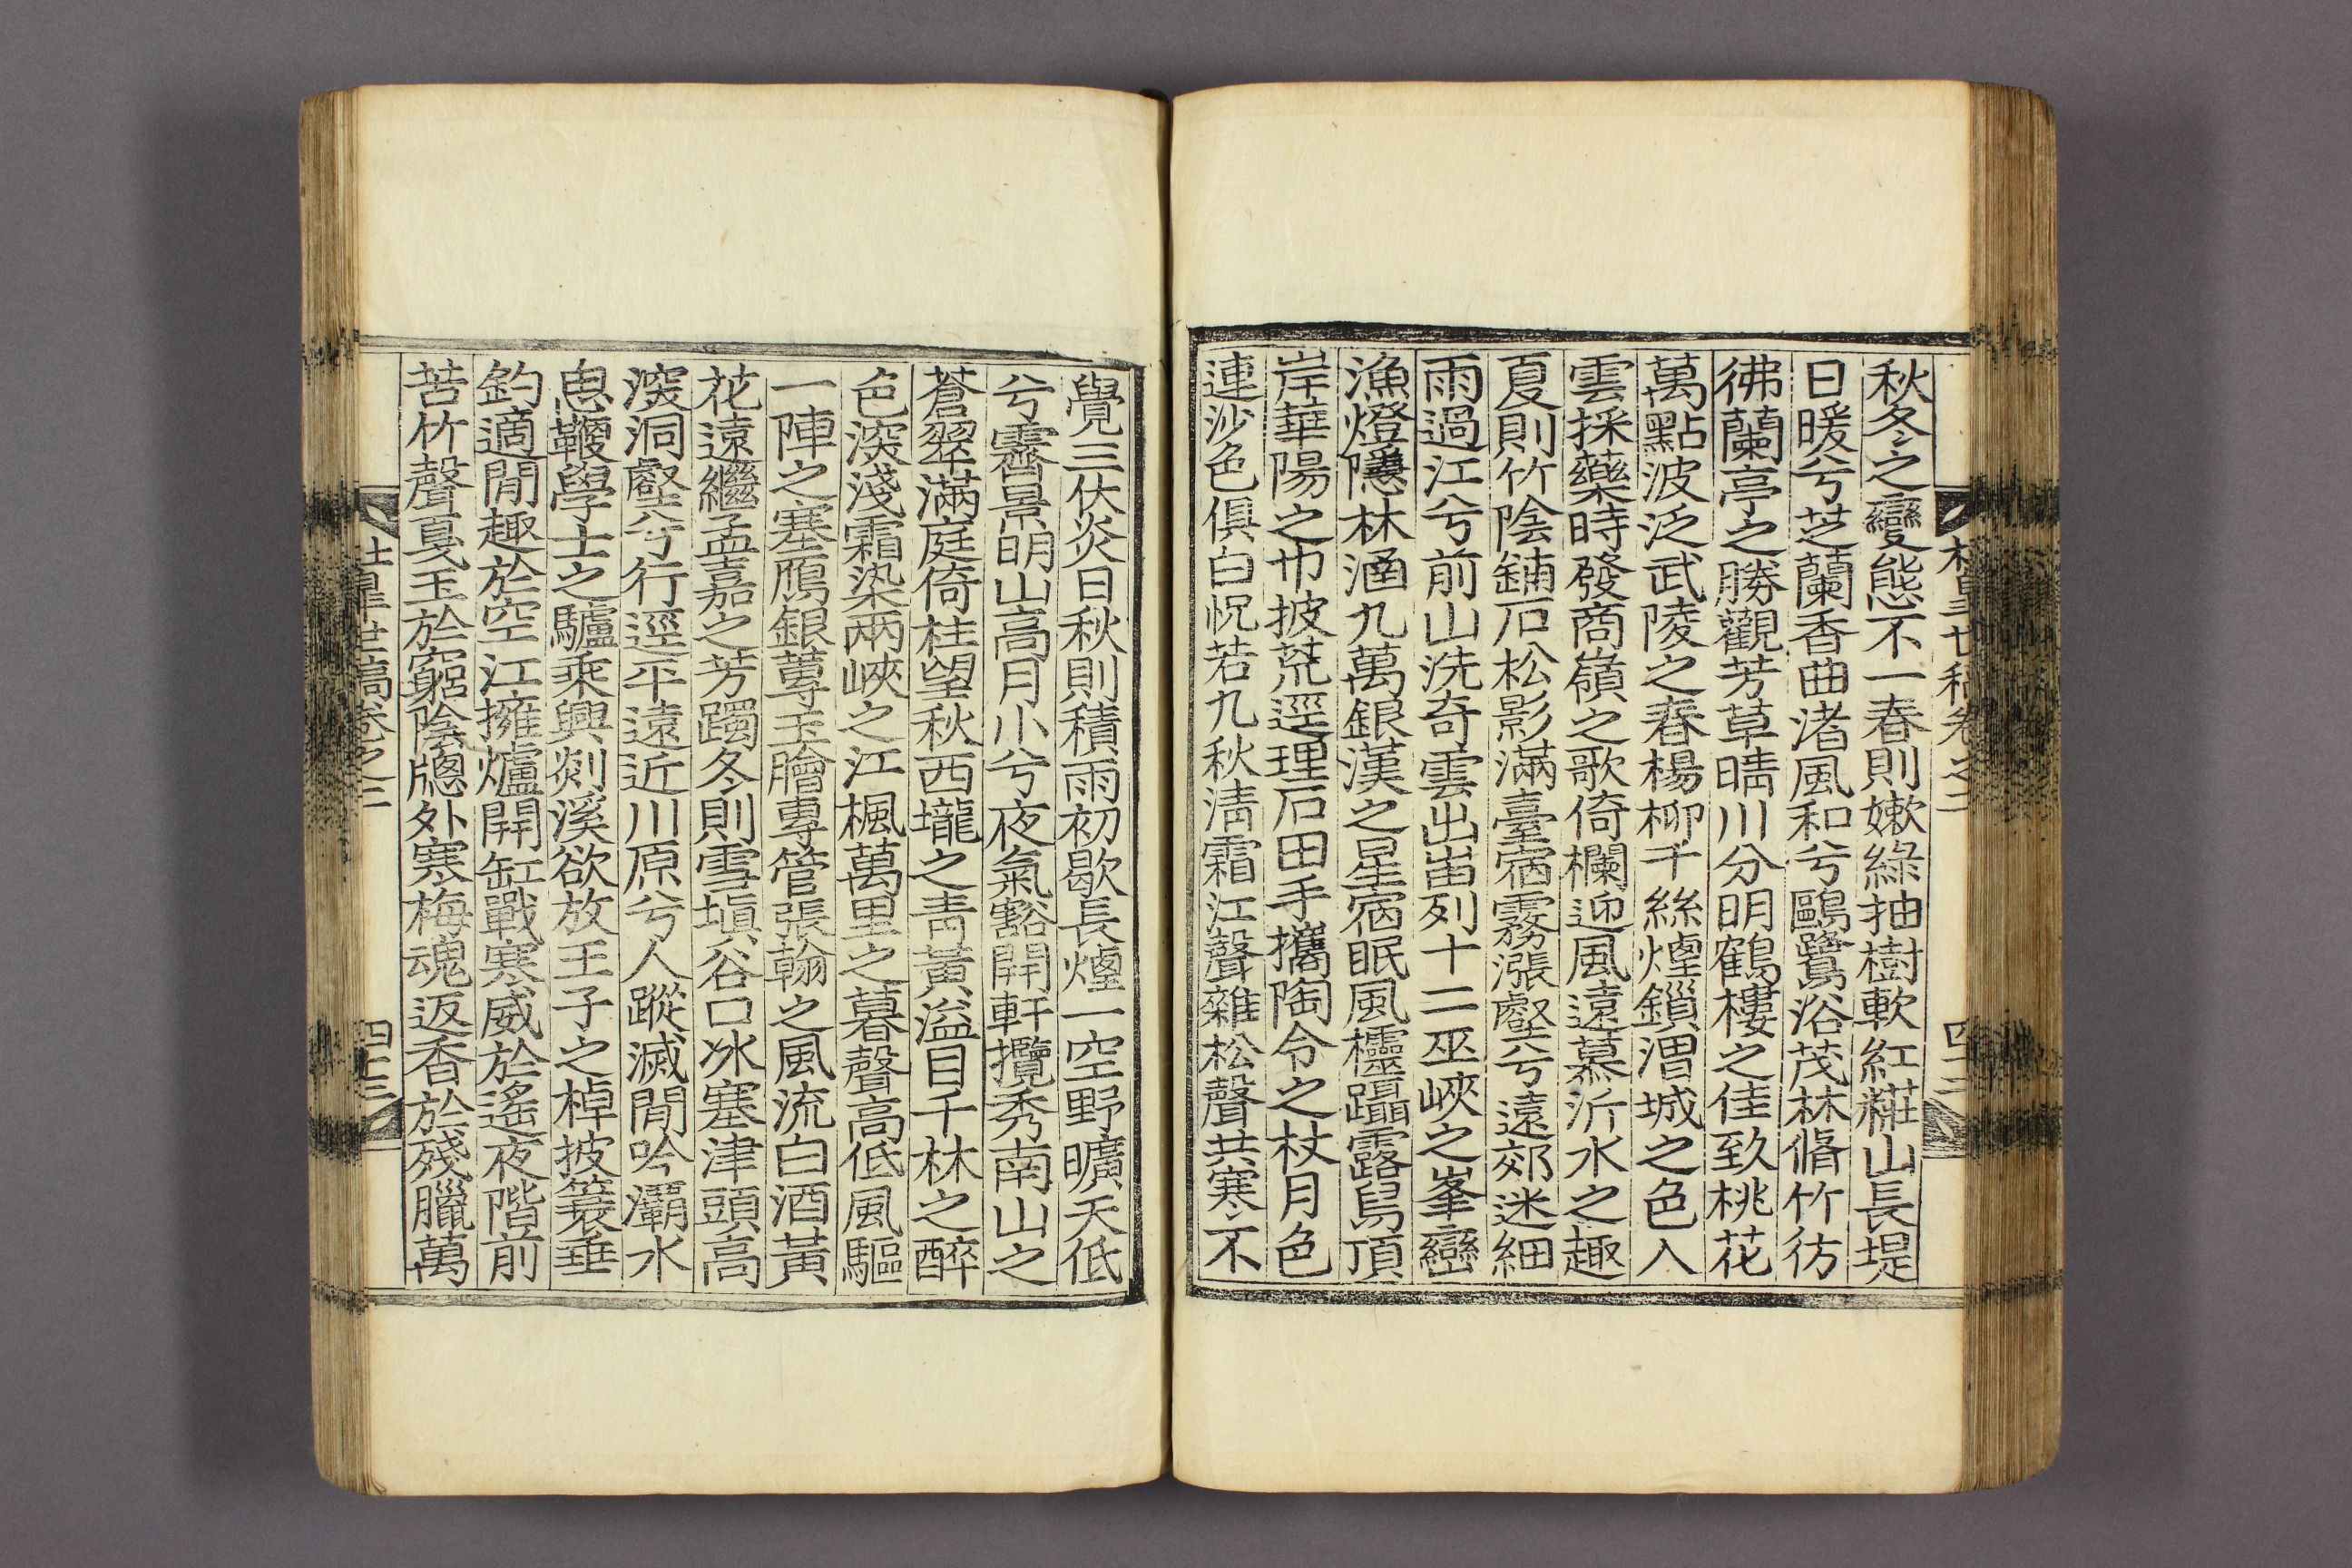 秋冬之變態不一春則嫩綠抽樹軟紅糚山長堤
日暖兮芝蘭香曲渚風和兮鷗鷺浴茂林脩竹彷
彿蘭亭之勝觀芳草晴川分明鶴樓之佳致桃花
萬點波泛武陵之春楊柳千絲煙鎖渭城之色入
雲採藥時發商嶺之歌倚欄迎風遠慕沂水之趣
夏則竹陰鋪石松影滿臺宿霧漲壑兮遠郊迷細
雨過江兮前山洗奇雲出峀列十二巫峽之峯巒
漁燈隱林涵九萬銀漢之星宿眠風欞躡露舃頂
岸華陽之巾披荒逕理石田手攜陶令之杖月色
連沙色俱白怳若九秋淸霜江聲雜松聲共寒不
覺三伏炎日秋則積雨初歇長煙一空野曠天低
兮霽景明山高月小兮夜氣豁開軒攬秀南山之
蒼翠滿庭倚柱望秋西壠之靑黃溢目千林之醉
色深淺霜染兩峽之江楓萬里之暮聲高低風驅
一陣之塞鴈銀蓴玉膾專管張翰之風流白酒黃
花遠繼孟嘉之芳躅冬則雪塡谷口冰塞津頭高
深洞壑兮行逕平遠近川原兮人蹤滅閒吟灞水
息鞭學士之驢乘興剡溪欲放王子之棹披簑垂
釣適閒趣於空江擁爐開缸戰寒威於遙夜階前
苦竹聲戛玉於窮陰牕外寒梅魂返香於殘臘萬
世稿卷之三
四十三